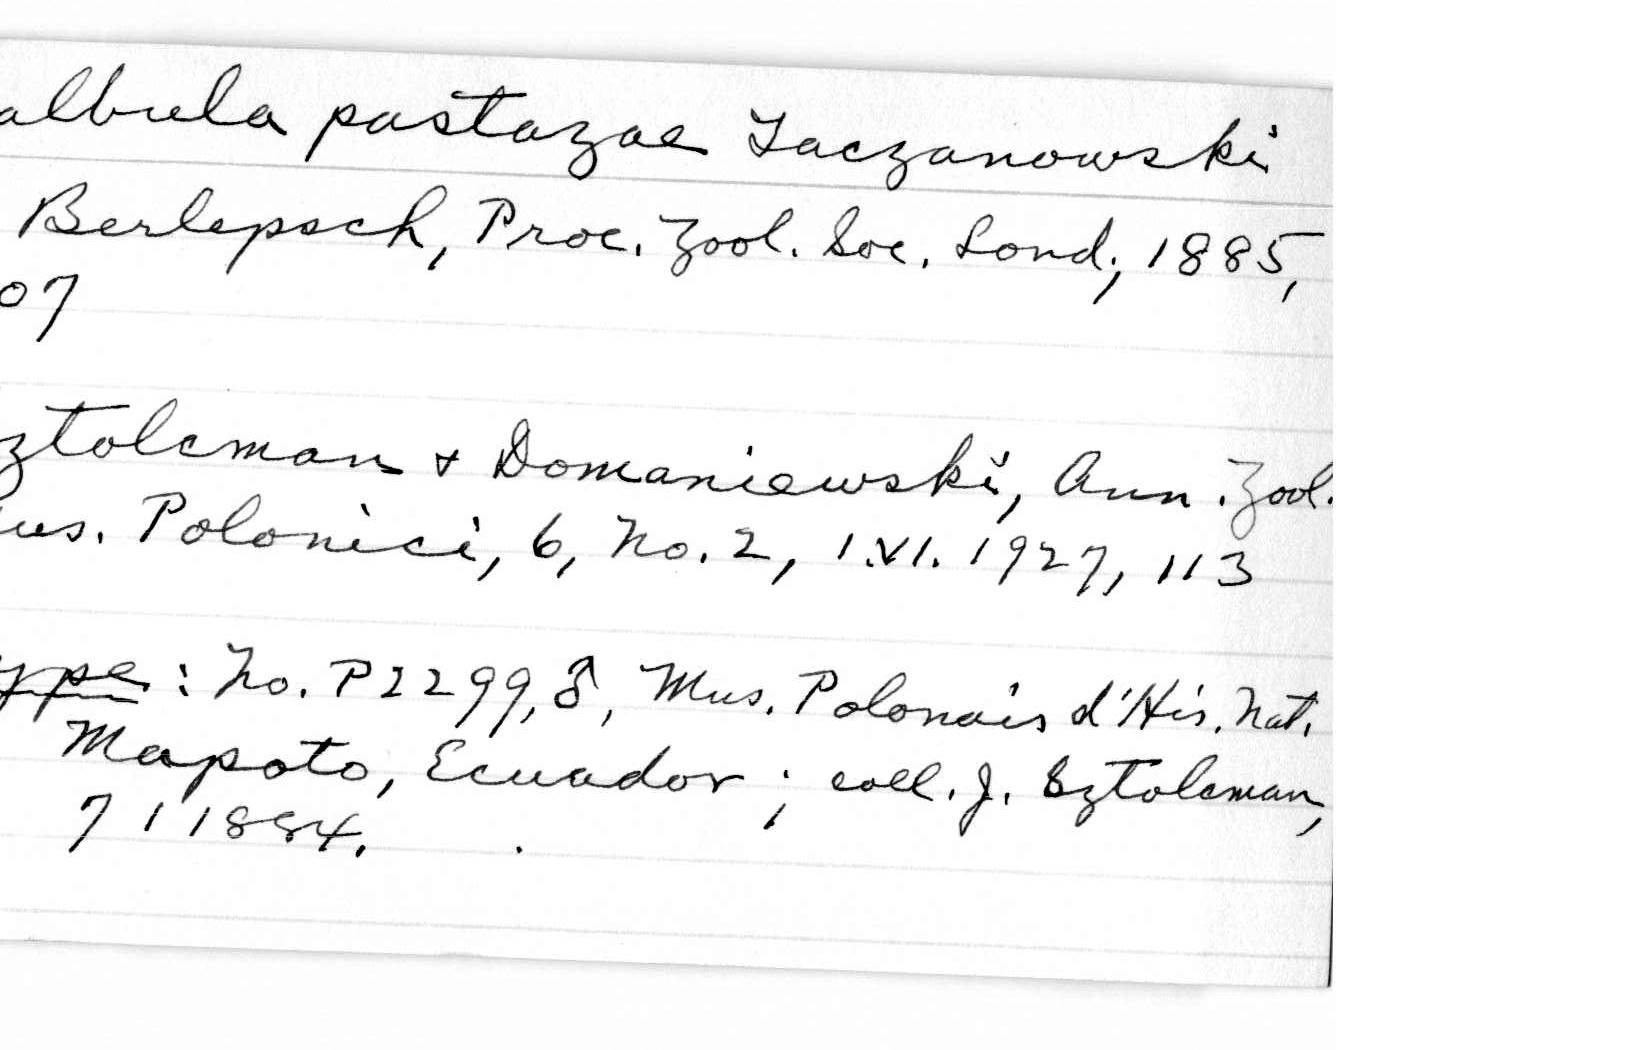 albula pastazae Taczanowski
Berlepsch, Proc. Zool. Soc. Lond., 1885,
07
ztolcman + Domaniewski, Ann. Zool.
us. Polonici, 6, No. 2, 1.VI. 1927, 113
ype: No. P2299, ♂, Mus. Polonais d'His. Nat.
Mapoto, Ecuador; coll. J. Sztolcman,
7 1 1884.